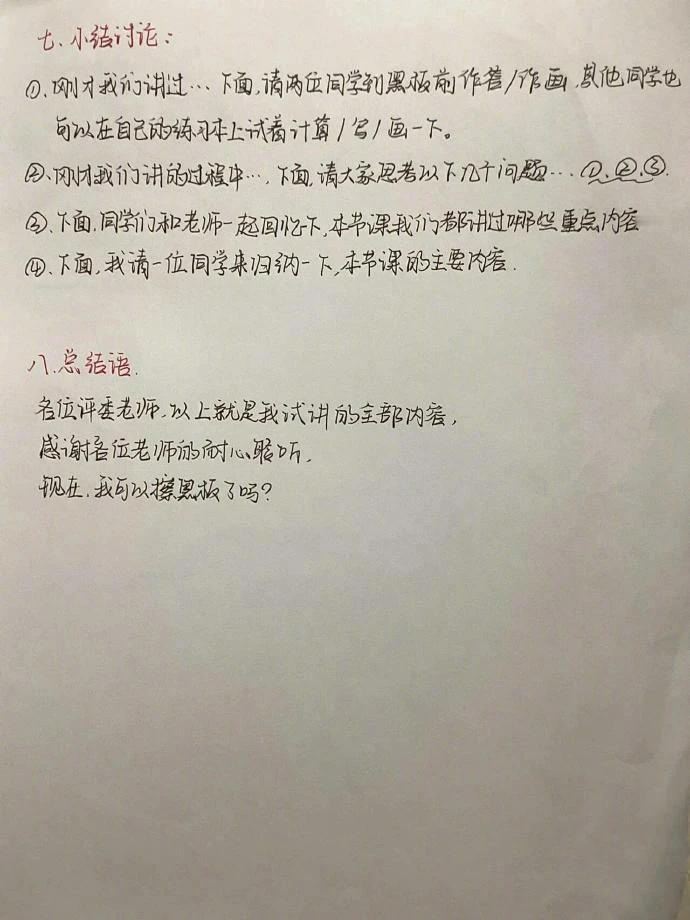 七、小结讨论：
①、刚才我们讲过…下面,请两位同学到黑板前作答/作画,其他同学也
可以在自己的练习本上试着计算/写/画一下。
②、刚才我们讲的过程中…,下面,请大家思考以下几个问题…①.②.③.
③、下面,同学们和老师一起回忆一下,本节课我们都讲过哪些重点内容
④、下面,我请一位同学来归纳一下,本节课的主要内容.
八.总结语.
各位评委老师,以上就是我试讲的全部内容,
感谢各位老师的耐心聆听,
现在,我可以擦黑板了吗?